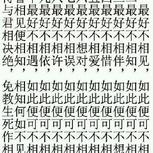 一最好不相见，如此便可不相
二最好不相知，如此便可不相
三最好不相伴，如此便可不相
四最好不相惜，如此便可不相
五最好不相爱，如此便可不相
六最好不想对，如此便可不相
七最好不相误，如此便可不相
八最好不相许，如此便可不相
九最好不相依，如此便可不相
十最好不相遇，如此便可不相
相见便相知，相知何如不见
与君相决绝，免教生死作相